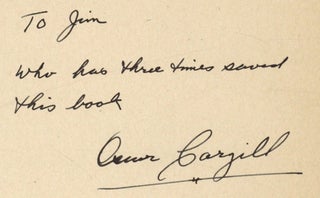 To Jim
who has three times saved
this book
Oscar Cargill